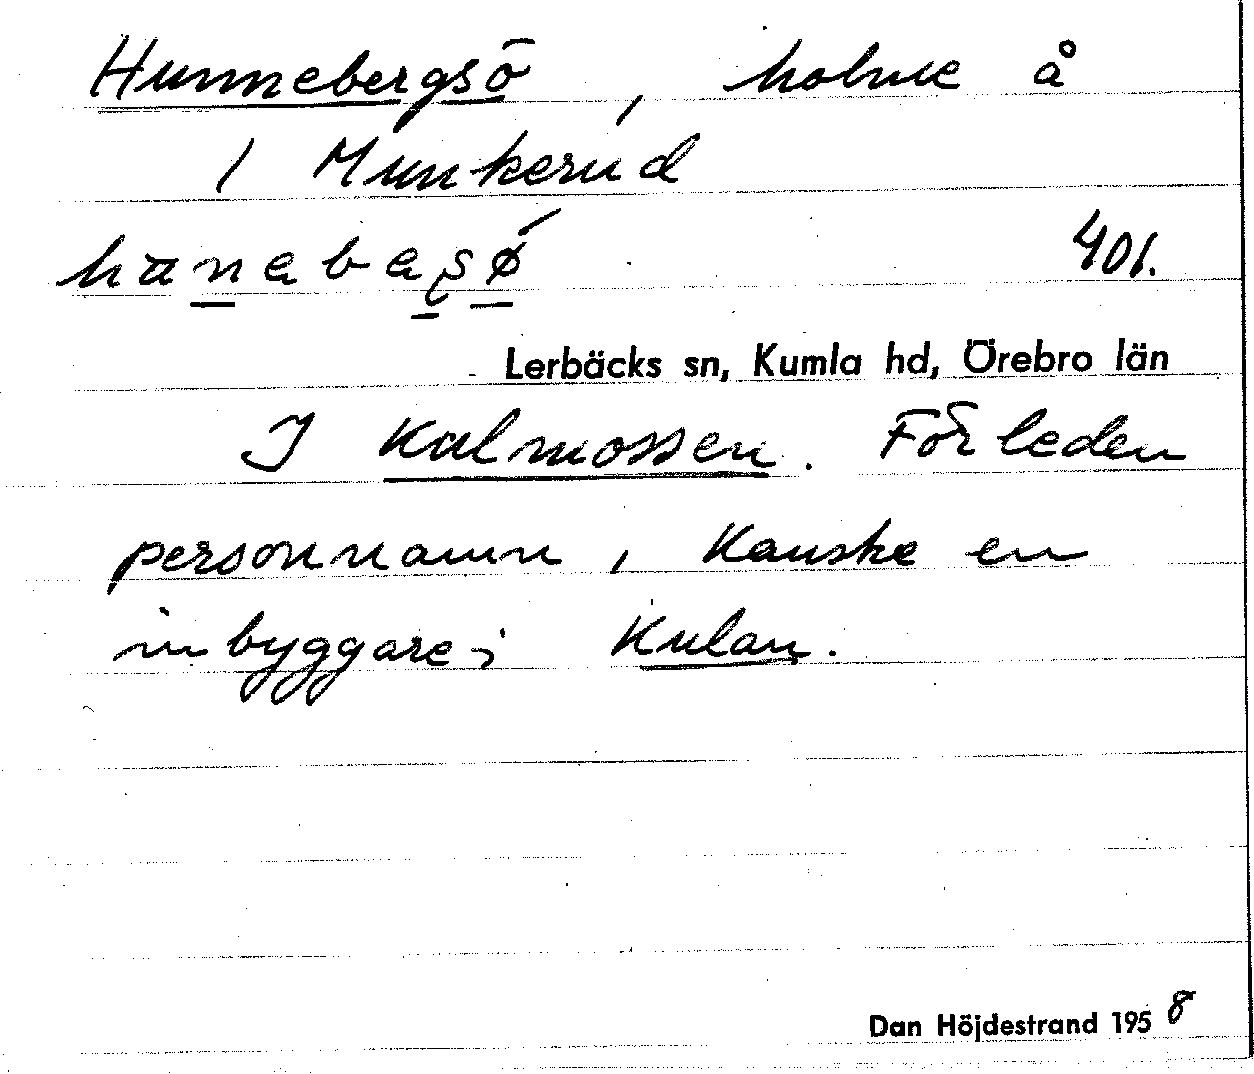 Hunnebergsö, holme å
1 Munkerud
hanebasø 401.
Lerbäcks sn, Kumla hd, Örebro län
I Kalmossen. Förleden
personnamn, Kanske en
inbyggare i Kulan.
Dan Höjdestrand 1958